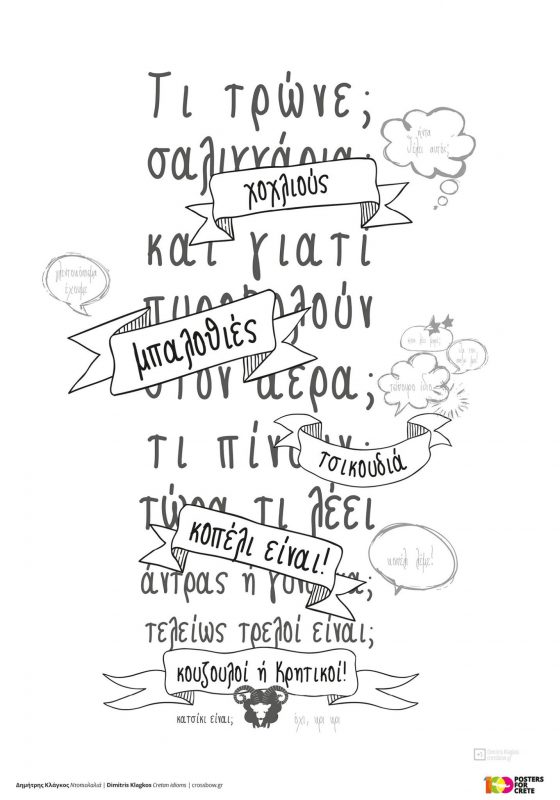 Τι τρώνε;
ήντα
θέλει αυτός;
σαλιγκάρια;
χοχλιούς
και γιατί
έχουμε
πυροβολούν
μπαλοθιές
στον αέρα;
τι πίνουν;
τσικουδιά
τώρα τι λέει
κοπέλι είναι!
κοπέλι λέμε!
άντρας ή γυναίκα;
τελείως τρελοί είναι;
κουζουλοί ή Κρητικοί!
κατσίκι είναι;
όχι, κρι κρι
Dimitris Klagkos
crossbow.gr
Δημήτρης Κλάγκος Ντοπιολαλιά | Dimitris Klagkos Cretan idioms | crossbow.gr
100 POSTERS
FOR
CRETE